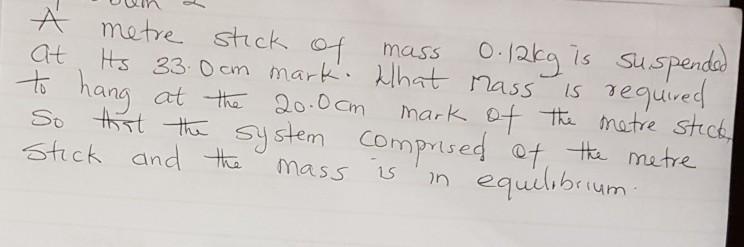 A metre stick of mass 0.12kg is suspended
at its 33.0cm mark. What mass is required
to hang at the 20.0cm mark of the metre stick,
So that the system comprised of the metre
Stick and the mass is in equilibrium.